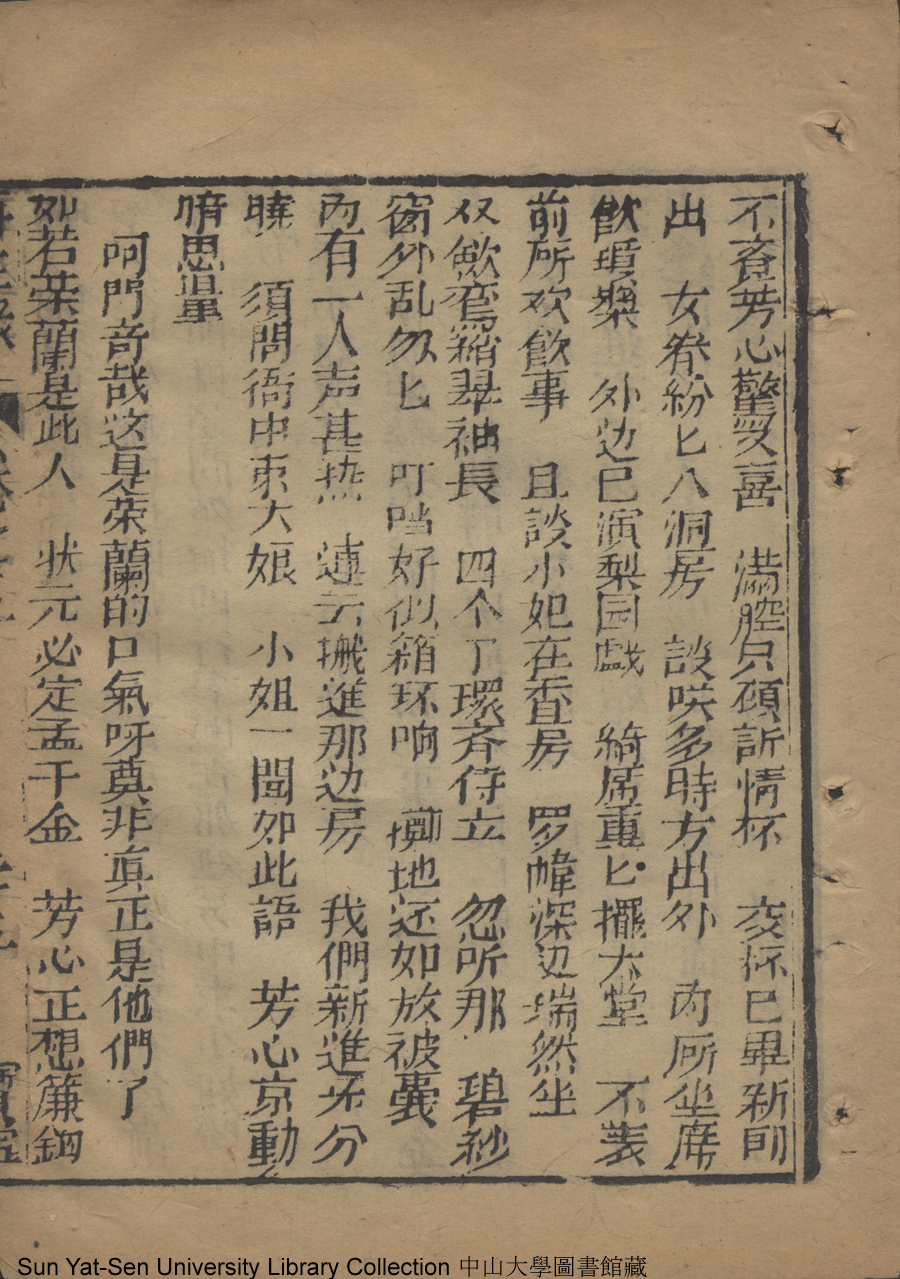 不資芳心驚又喜　滿腔只碩訴情杯　交杯已畢新郎
出　女眷紛匕入洞房　談咲多時方出外　內厛坐席
飲瓊漿　外边已演梨园戲　綺席重匕擺大堂　不表
前所欢飲事　且談小妃在香房　罗幃深边瑞然坐
双歛鸾綃翠袖長　四个丫環斉侍立　忽所那　碧紗
窗外乱匆匕　叮噹好似箱环响　擲地还如放被囊
內有一人声甚热　連云搬進那边房　我們新進未分
曉　須問衙中束大娘　小姐一聞如此語　芳心京動
暗思量
呵門奇哉这是荣蘭的口氣呀莫非真正是他們了
如若荣蘭是此人　狀元必定孟千金　芳心正想簾鈎
Sun Yat-Sen University Library Collection 中山大學圖書館藏